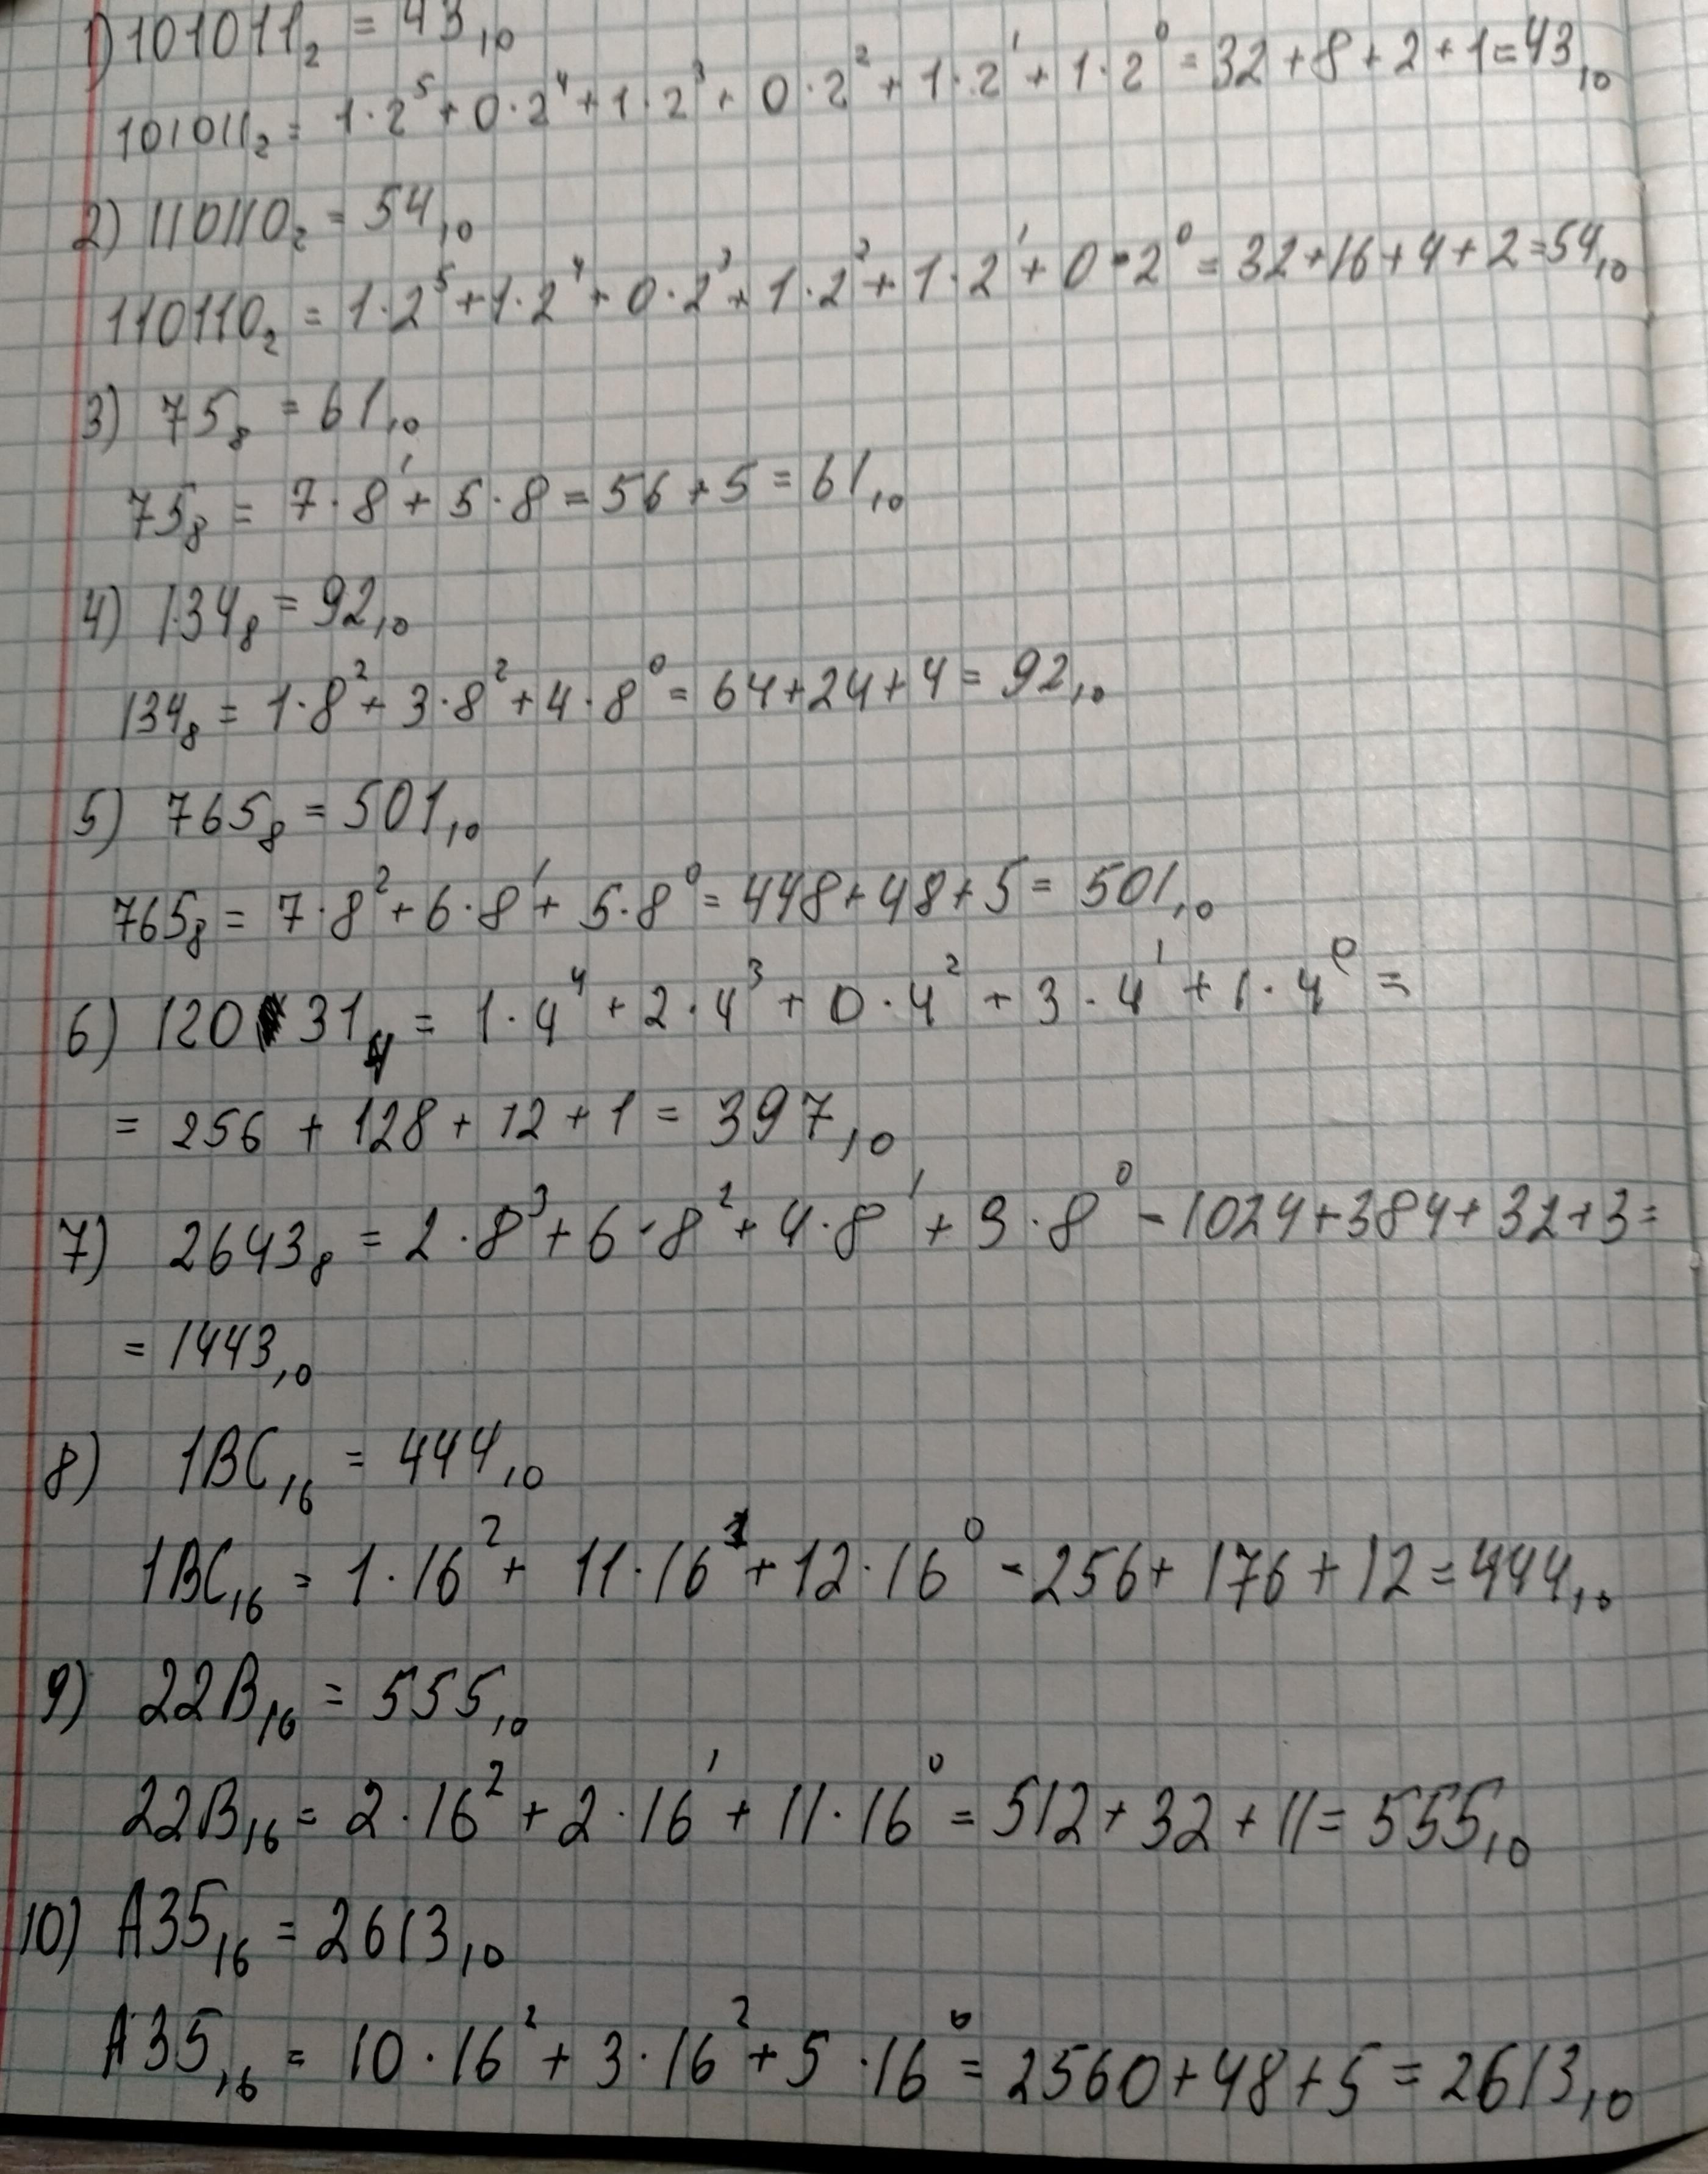 1) 101011₂ = 43₁₀
101011₂ = 1·2⁵ + 0·2⁴ + 1·2³ + 0·2² + 1·2¹ + 1·2⁰ = 32 + 8 + 2 + 1 = 43₁₀
2) 110110₂ = 54₁₀
110110₂ = 1·2⁵ + 1·2⁴ + 0·2³ + 1·2² + 1·2¹ + 0·2⁰ = 32 + 16 + 4 + 2 = 54₁₀
3) 75₈ = 61₁₀
75₈ = 7·8¹ + 5·8 = 56 + 5 = 61₁₀
4) 134₈ = 92₁₀
134₈ = 1·8² + 3·8² + 4·8⁰ = 64 + 24 + 4 = 92₁₀
5) 765₈ = 501₁₀
765₈ = 7·8² + 6·8¹ + 5·8⁰ = 448 + 48 + 5 = 501₁₀
6) 12031₄ = 1·4⁴ + 2·4³ + 0·4² + 3·4¹ + 1·4⁰ =
= 256 + 128 + 12 + 1 = 397₁₀
7) 2643₈ = 2·8³ + 6·8² + 4·8¹ + 3·8⁰ = 1024 + 384 + 32 + 3 =
= 1443₁₀
8) 1BC₁₆ = 444₁₀
1BC₁₆ = 1·16² + 11·16¹ + 12·16⁰ = 256 + 176 + 12 = 444₁₀
9) 22B₁₆ = 555₁₀
22B₁₆ = 2·16² + 2·16¹ + 11·16⁰ = 512 + 32 + 11 = 555₁₀
10) A35₁₆ = 2613₁₀
A35₁₆ = 10·16² + 3·16² + 5·16⁰ = 2560 + 48 + 5 = 2613₁₀